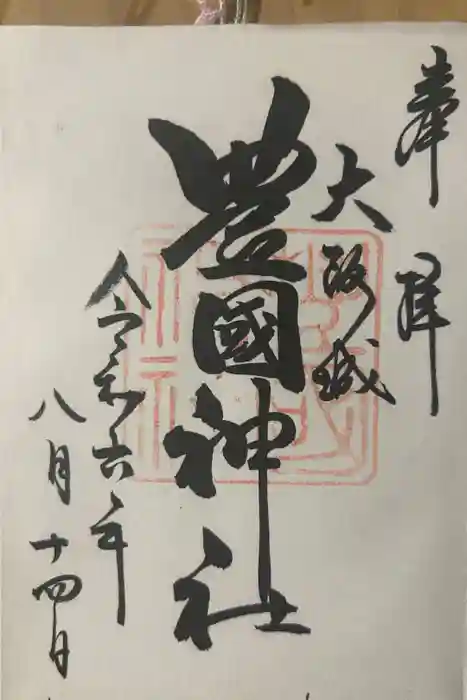 奉拝
大阪城
豊國神社
令和六年
八月十四日